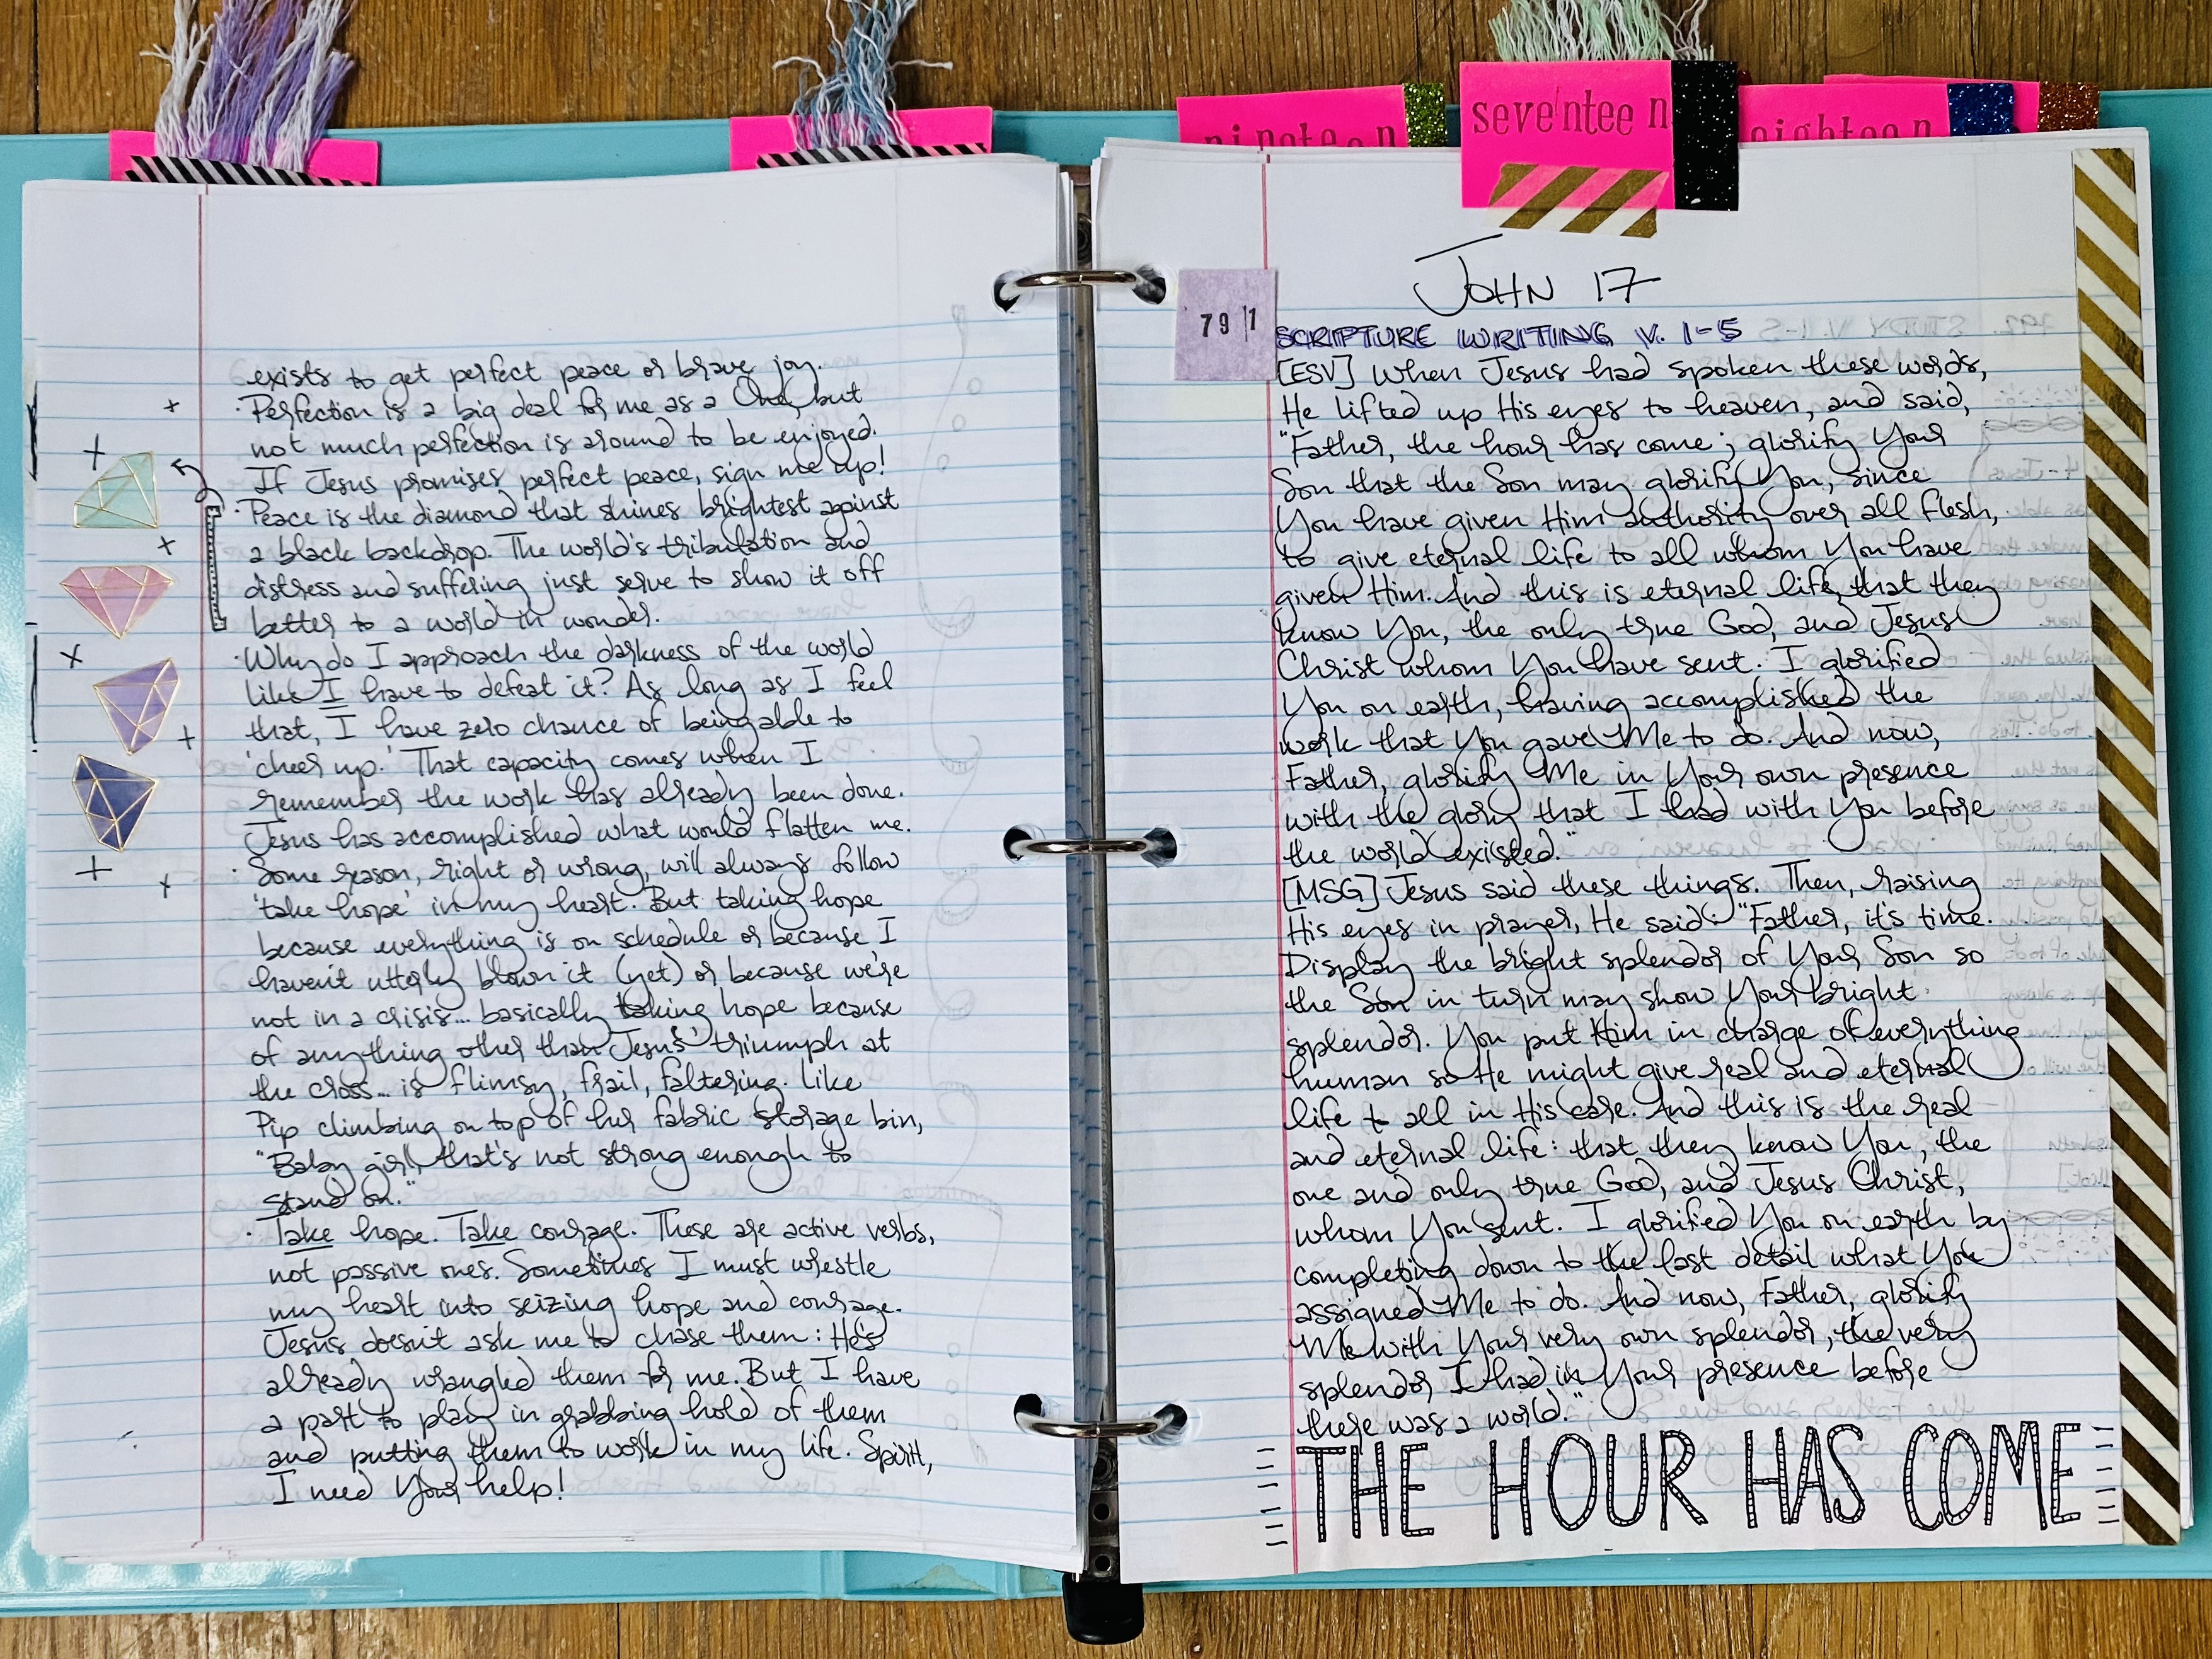 exists to get perfect peace or brave joy.
· Perfection is a big deal for me as a One, but
not much perfection is around to be enjoyed.
If Jesus promises perfect peace, sign me up!
· Peace is the diamond that shines brightest against
a black backdrop. The world's tribulation and
distress and suffering just serve to show it off
better to a world in wonder.
· Why do I approach the darkness of the world
like I have to defeat it? As long as I feel
that, I have zero chance of being able to
'cheer up.' That capacity comes when I
remember the work has already been done.
Jesus has accomplished what would flatten me.
· Some reason, right or wrong, will always follow
'take hope' in my heart. But taking hope
because everything is on schedule or because I
haven't utterly blown it (yet) or because we're
not in a crisis... basically taking hope because
of anything other than Jesus' triumph at
the cross... is flimsy, frail, faltering. Like
Pip climbing on top of her fabric storage bin,
"Baby girl, that's not strong enough to
stand on."
· Take hope. Take courage. These are active verbs,
not passive ones. Sometimes I must wrestle
my heart into seizing hope and courage.
Jesus doesn't ask me to chase them: He's
already wrangled them for me. But I have
a part to play in grabbing hold of them
and putting them to work in my life. Spirit,
I need Your help!
nineteen
seventeen
eighteen
JOHN 17
791
SCRIPTURE WRITING V. 1-5
[ESV] When Jesus had spoken these words,
He lifted up His eyes to heaven, and said,
"Father, the hour has come; glorify Your
Son that the Son may glorify You, since
You have given Him authority over all flesh,
to give eternal life to all whom You have
given Him. And this is eternal life, that they
know You, the only true God, and Jesus
Christ whom You have sent. I glorified
You on earth, having accomplished the
work that You gave Me to do. And now,
Father, glorify Me in Your own presence
with the glory that I had with You before
the world existed."
[MSG] Jesus said these things. Then, raising
His eyes in prayer, He said: "Father, it's time.
Display the bright splendor of Your Son so
the Son in turn may show Your bright
splendor. You put Him in charge of everything
human so He might give real and eternal
life to all in His care. And this is the real
and eternal life: that they know You, the
one and only true God, and Jesus Christ,
whom You sent. I glorified You on earth by
completing down to the last detail what You
assigned Me to do. And now, Father, glorify
Me with Your very own splendor, the very
splendor I had in Your presence before
there was a world."
THE HOUR HAS COME